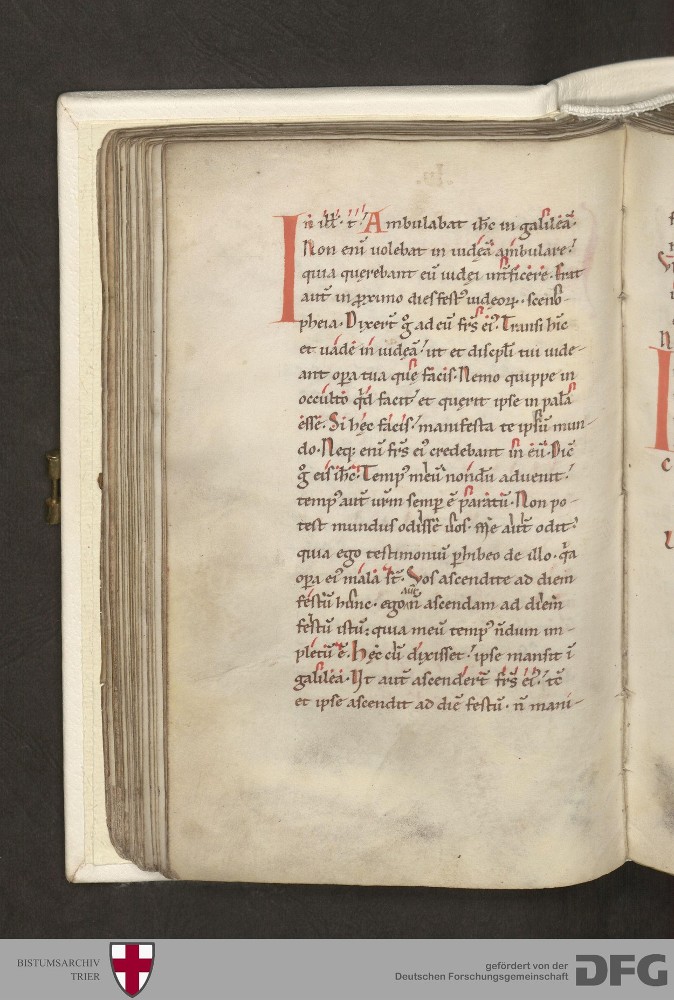 In ill̅. t̅. Ambulabat ih̅c in galilęa.
Non eni̅ uolebat in iudęa ambulare.
quia quęrebant eu̅ iudęi int̅ficere. Erat
aut̅ in ꝓximo dies fest᷒ iudeoꝝ. sceno-
pheia. Dixer̅t g̊ ad eu̅ fr̅s ei᷒. Transi hi̅c
et uade in iudęa̅. ut et discpl̅i tui uide-
ant op̅a tua quę facis. Nemo quippe in
occulto qd̅ facit. et quęrit ipse in pala̅
esse. Si hęc facis. manifesta te ipsu̅ mun-
do. Neq; eni̅ fr̅s ei᷒ credebant in eu̅. Dic̅
g̊ eis ih̅c. Temp᷒ meu̅ nondu̅ aduenit.
temp᷒ aut̅ ur̅m semp̅ e̅ paratu̅. Non po-
test mundus odisse uos. me aut̅ odit.
quia ego testimoniu̅ p̅hibeo de illo. qa
op̅a ei᷒ mala st̅. Vos ascendite ad diem
festu̅ hunc. ego n̅ ascendam ad diem
festu̅ istu̅; quia meu̅ temp᷒ n̅dum im-
pletu̅ e̅. Hęc cu̅ dixisset. ipse mansit i̅
galilęa. Vt aut̅ ascender̅t fr̅s ei᷒. tc̅
et ipse ascendit ad die̅ festu̅. n̅ mani-
BISTUMSARCHIV
TRIER
gefördert von der
Deutschen Forschungsgemeinschaft
DFG